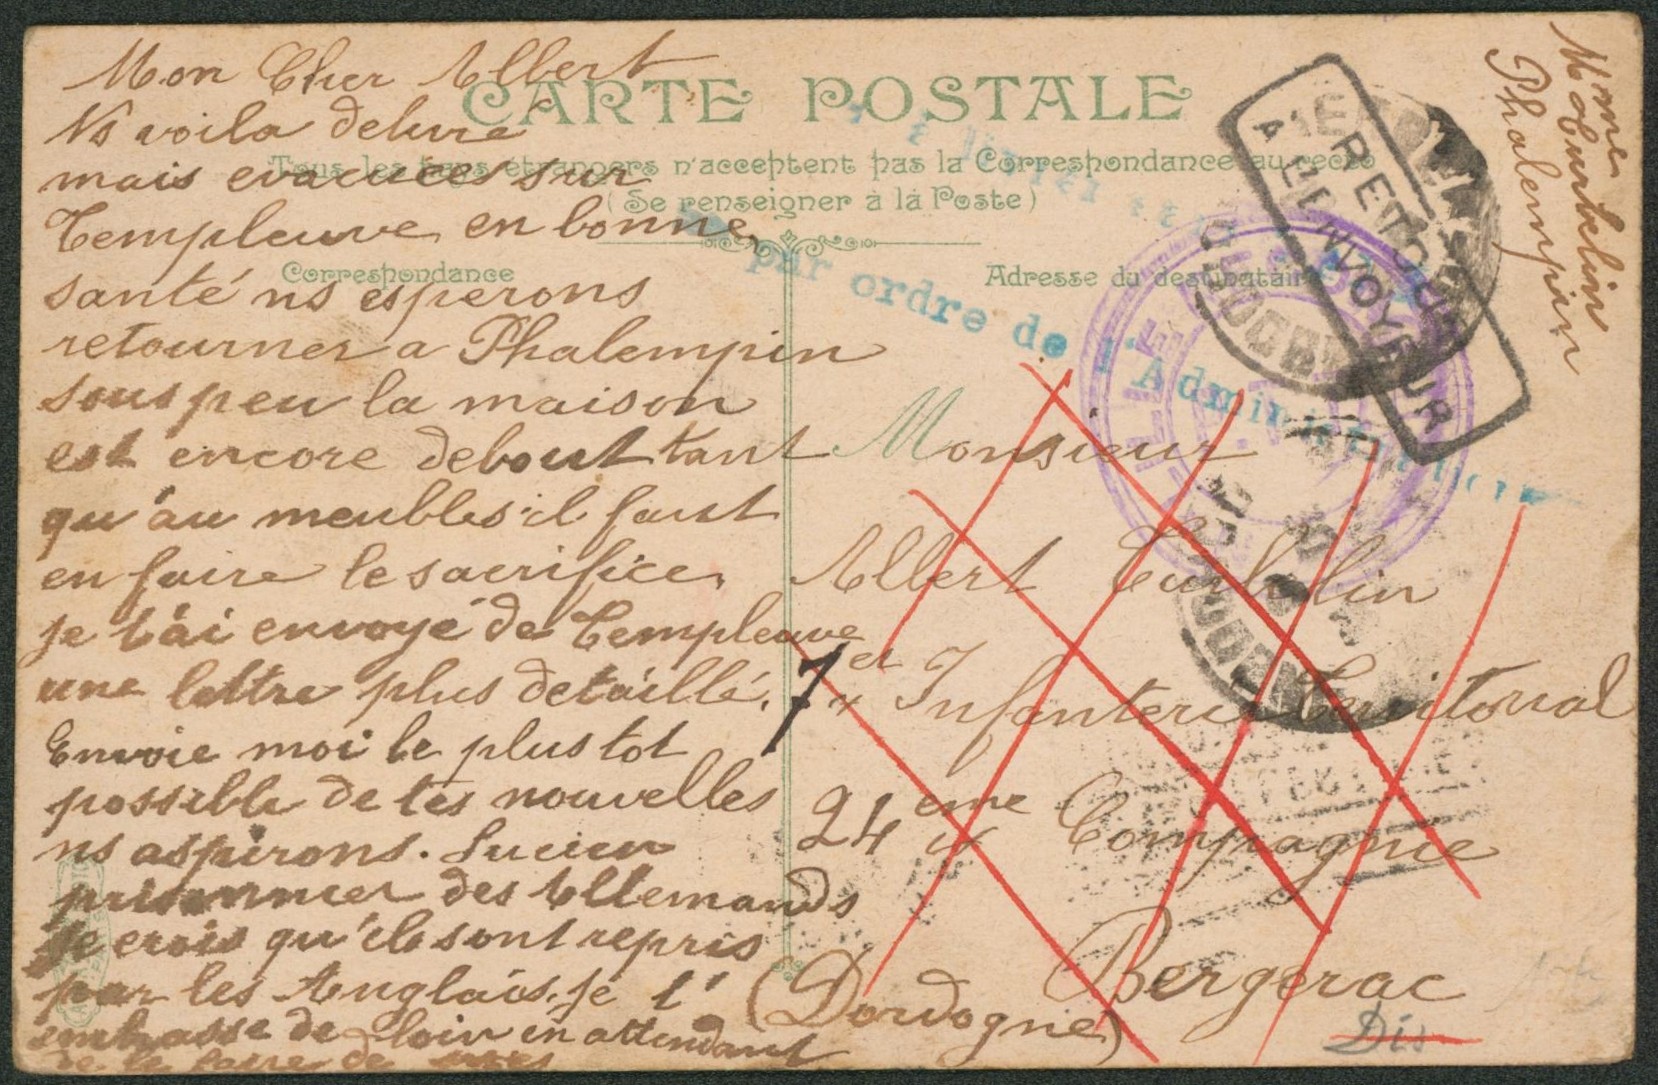 CARTE POSTALE
Tous les pays étrangers n'acceptent pas la Correspondance au recto
(Se renseigner à la Poste)
Correspondance
Adresse du destinataire
Mon Cher Albert
Ns voila delivre
mais evacuées sur
Templeuve en bonne
santé ns esperons
retourner a Phalempin
sous peu la maison
est encore debout tant
qu'au meubles il faut
en faire le sacrifice.
je t'ai envoyé de Templeuve
une lettre plus detaillé.
Envoie moi le plus tot
possible de tes nouvelles
ns aspirons. Lucien
prisonnier des Allemands
je crois qu'ils sont repris
par les Anglais. je t'
embrasse de loin en attendant
de le faire de
Monsieur
Albert Turbelin
7 Infanterie Territorial
24 eme Compagnie
Bergerac
(Dordogne)
Dis
Mme Turbelin
Phalempin
RETOUR
A L'ENVOYEUR
par ordre de l'Administration